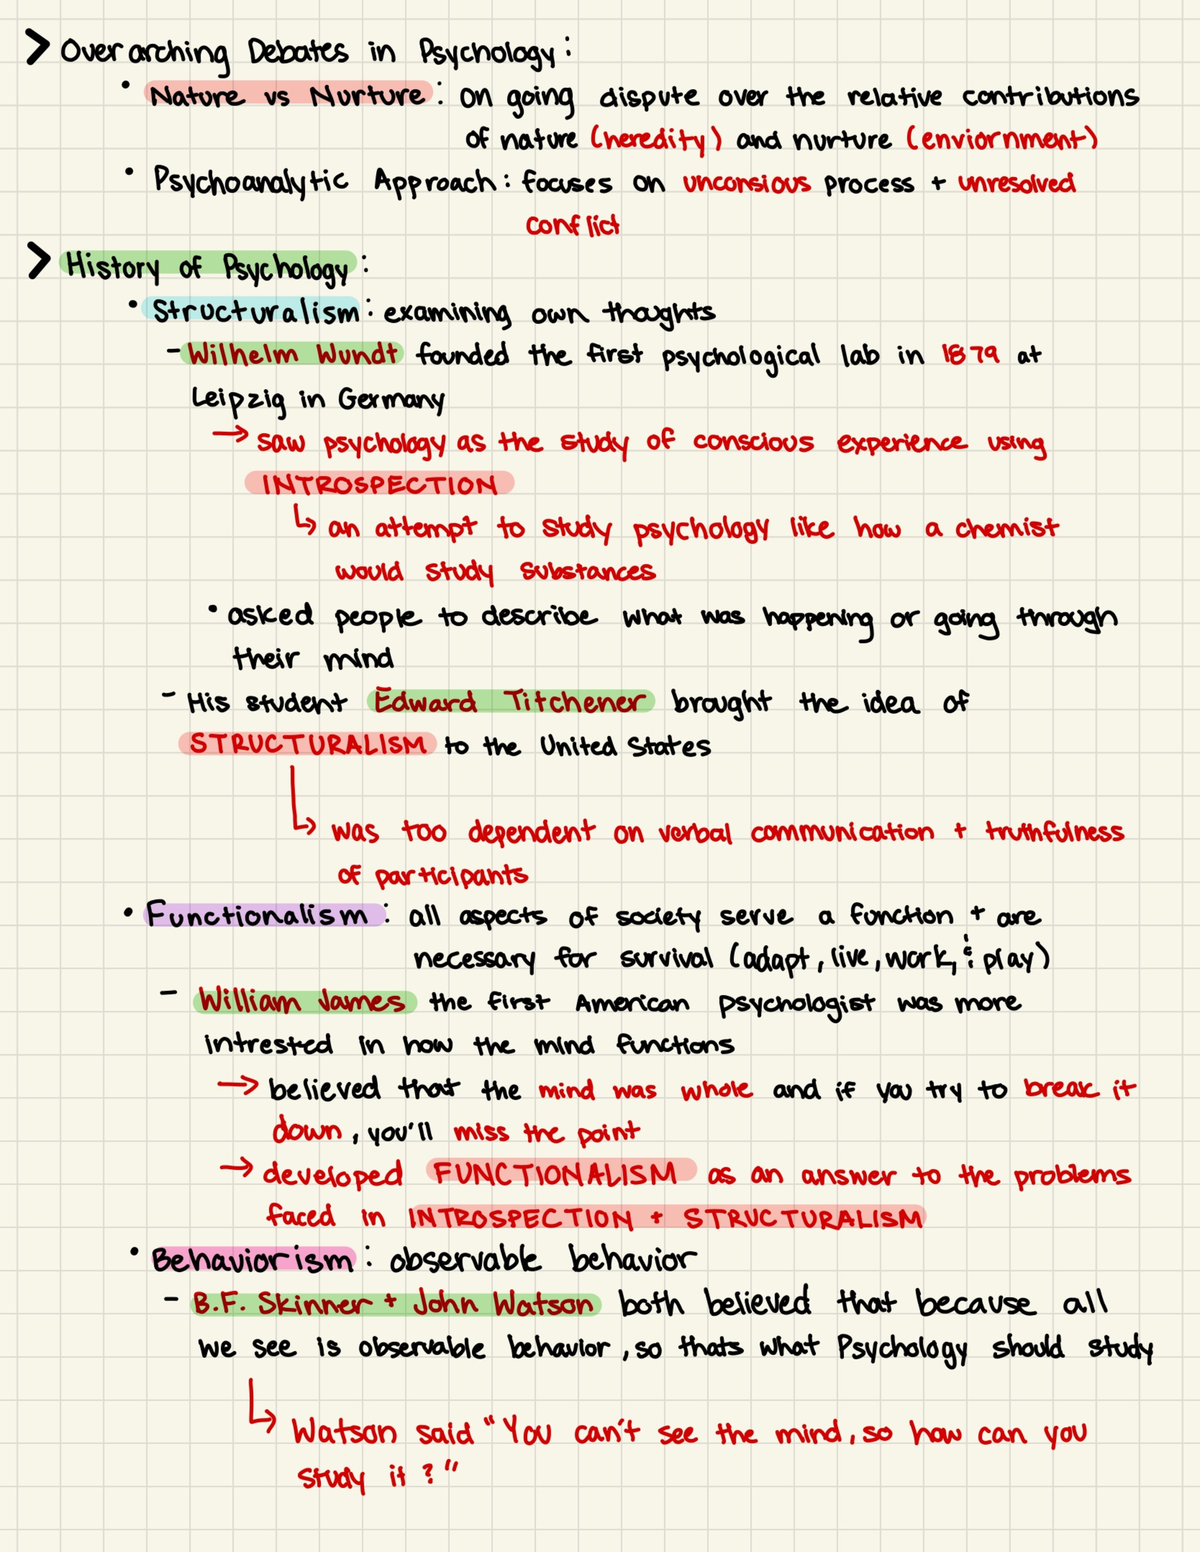 > Overarching Debates in Psychology:
• Nature vs Nurture: on going dispute over the relative contributions
of nature (heredity) and nurture (enviornment)
• Psychoanalytic Approach: focuses on unconsious process + unresolved
conflict
> History of Psychology:
• Structuralism: examining own thoughts
- Wilhelm Wundt founded the first psychological lab in 1879 at
Leipzig in Germany
→ saw psychology as the study of conscious experience using
INTROSPECTION
↳ an attempt to study psychology like how a chemist
would study substances
• asked people to describe what was happening or going through
their mind
- His student Edward Titchener brought the idea of
STRUCTURALISM to the United States
↳ was too dependent on verbal communication + truthfulness
of participants
• Functionalism: all aspects of society serve a function + are
necessary for survival (adapt, live, work, & play)
- William James the first American psychologist was more
intrested in how the mind functions
→ believed that the mind was whole and if you try to break it
down, you'll miss the point
→ developed FUNCTIONALISM as an answer to the problems
faced in INTROSPECTION + STRUCTURALISM
• Behaviorism: observable behavior
- B.F. Skinner + John Watson both believed that because all
we see is observable behavior, so thats what Psychology should study
↳ Watson said "You can't see the mind, so how can you
study it?"